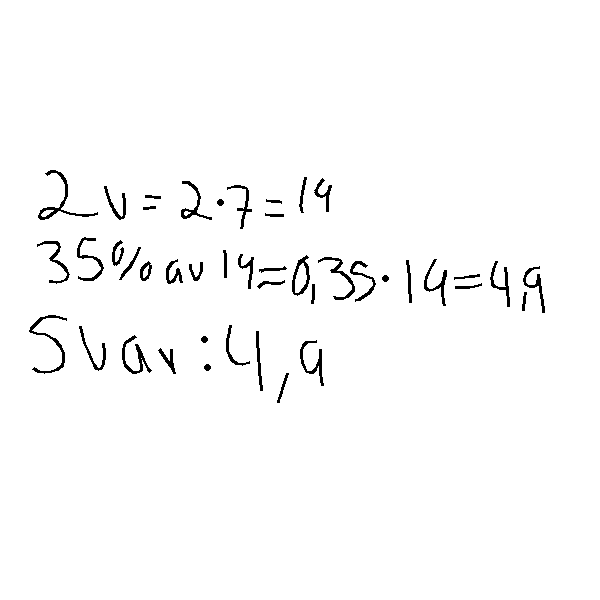 2 v = 2·7 = 14
35% av 14 = 0,35·14 = 4,9
Svar: 4,9